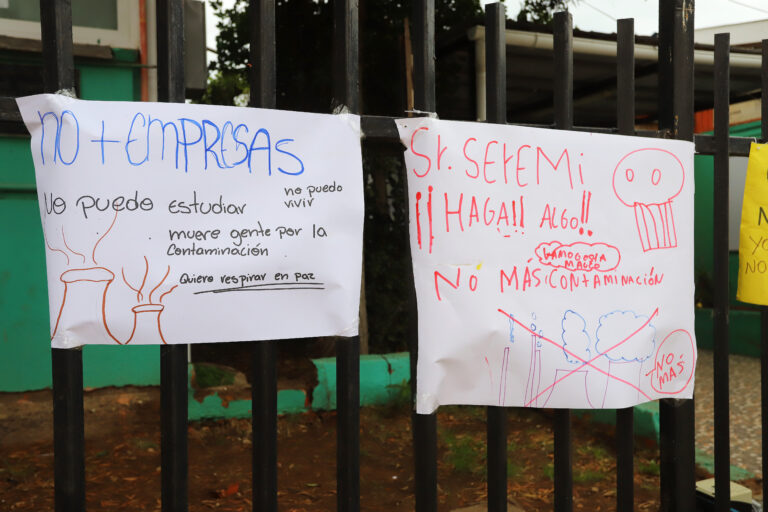 NO + EMPRESAS
No puedo estudiar
no puedo
vivir
muere gente por la
contaminación
Quiero respirar en paz
Sr. SEREMi
¡¡HAGA!! ALGO!!
NO MÁS CONTAMINACIÓN
NO
MÁS